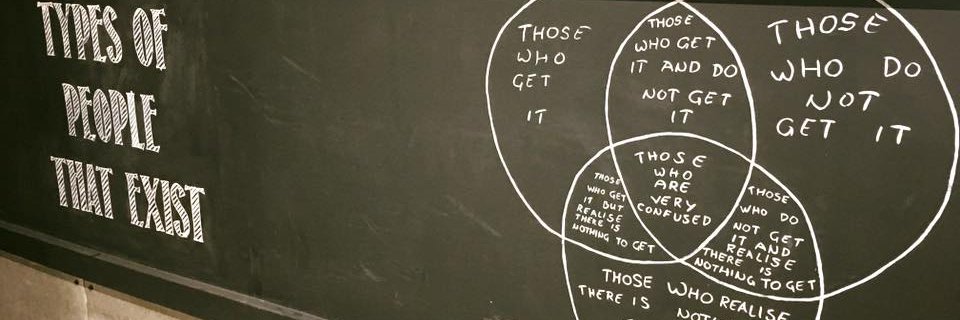 TYPES OF
PEOPLE
THAT EXIST
THOSE
WHO
GET
IT
THOSE
WHO GET
IT AND DO
NOT GET
IT
THOSE
WHO DO
NOT
GET IT
THOSE
WHO GET
IT BUT
REALISE
THERE IS
NOTHING TO GET
THOSE
WHO
ARE
VERY
CONFUSED
THOSE
WHO DO
NOT GET
IT AND
REALISE
THERE IS
NOTHING TO GET
THOSE WHO REALISE
THERE IS